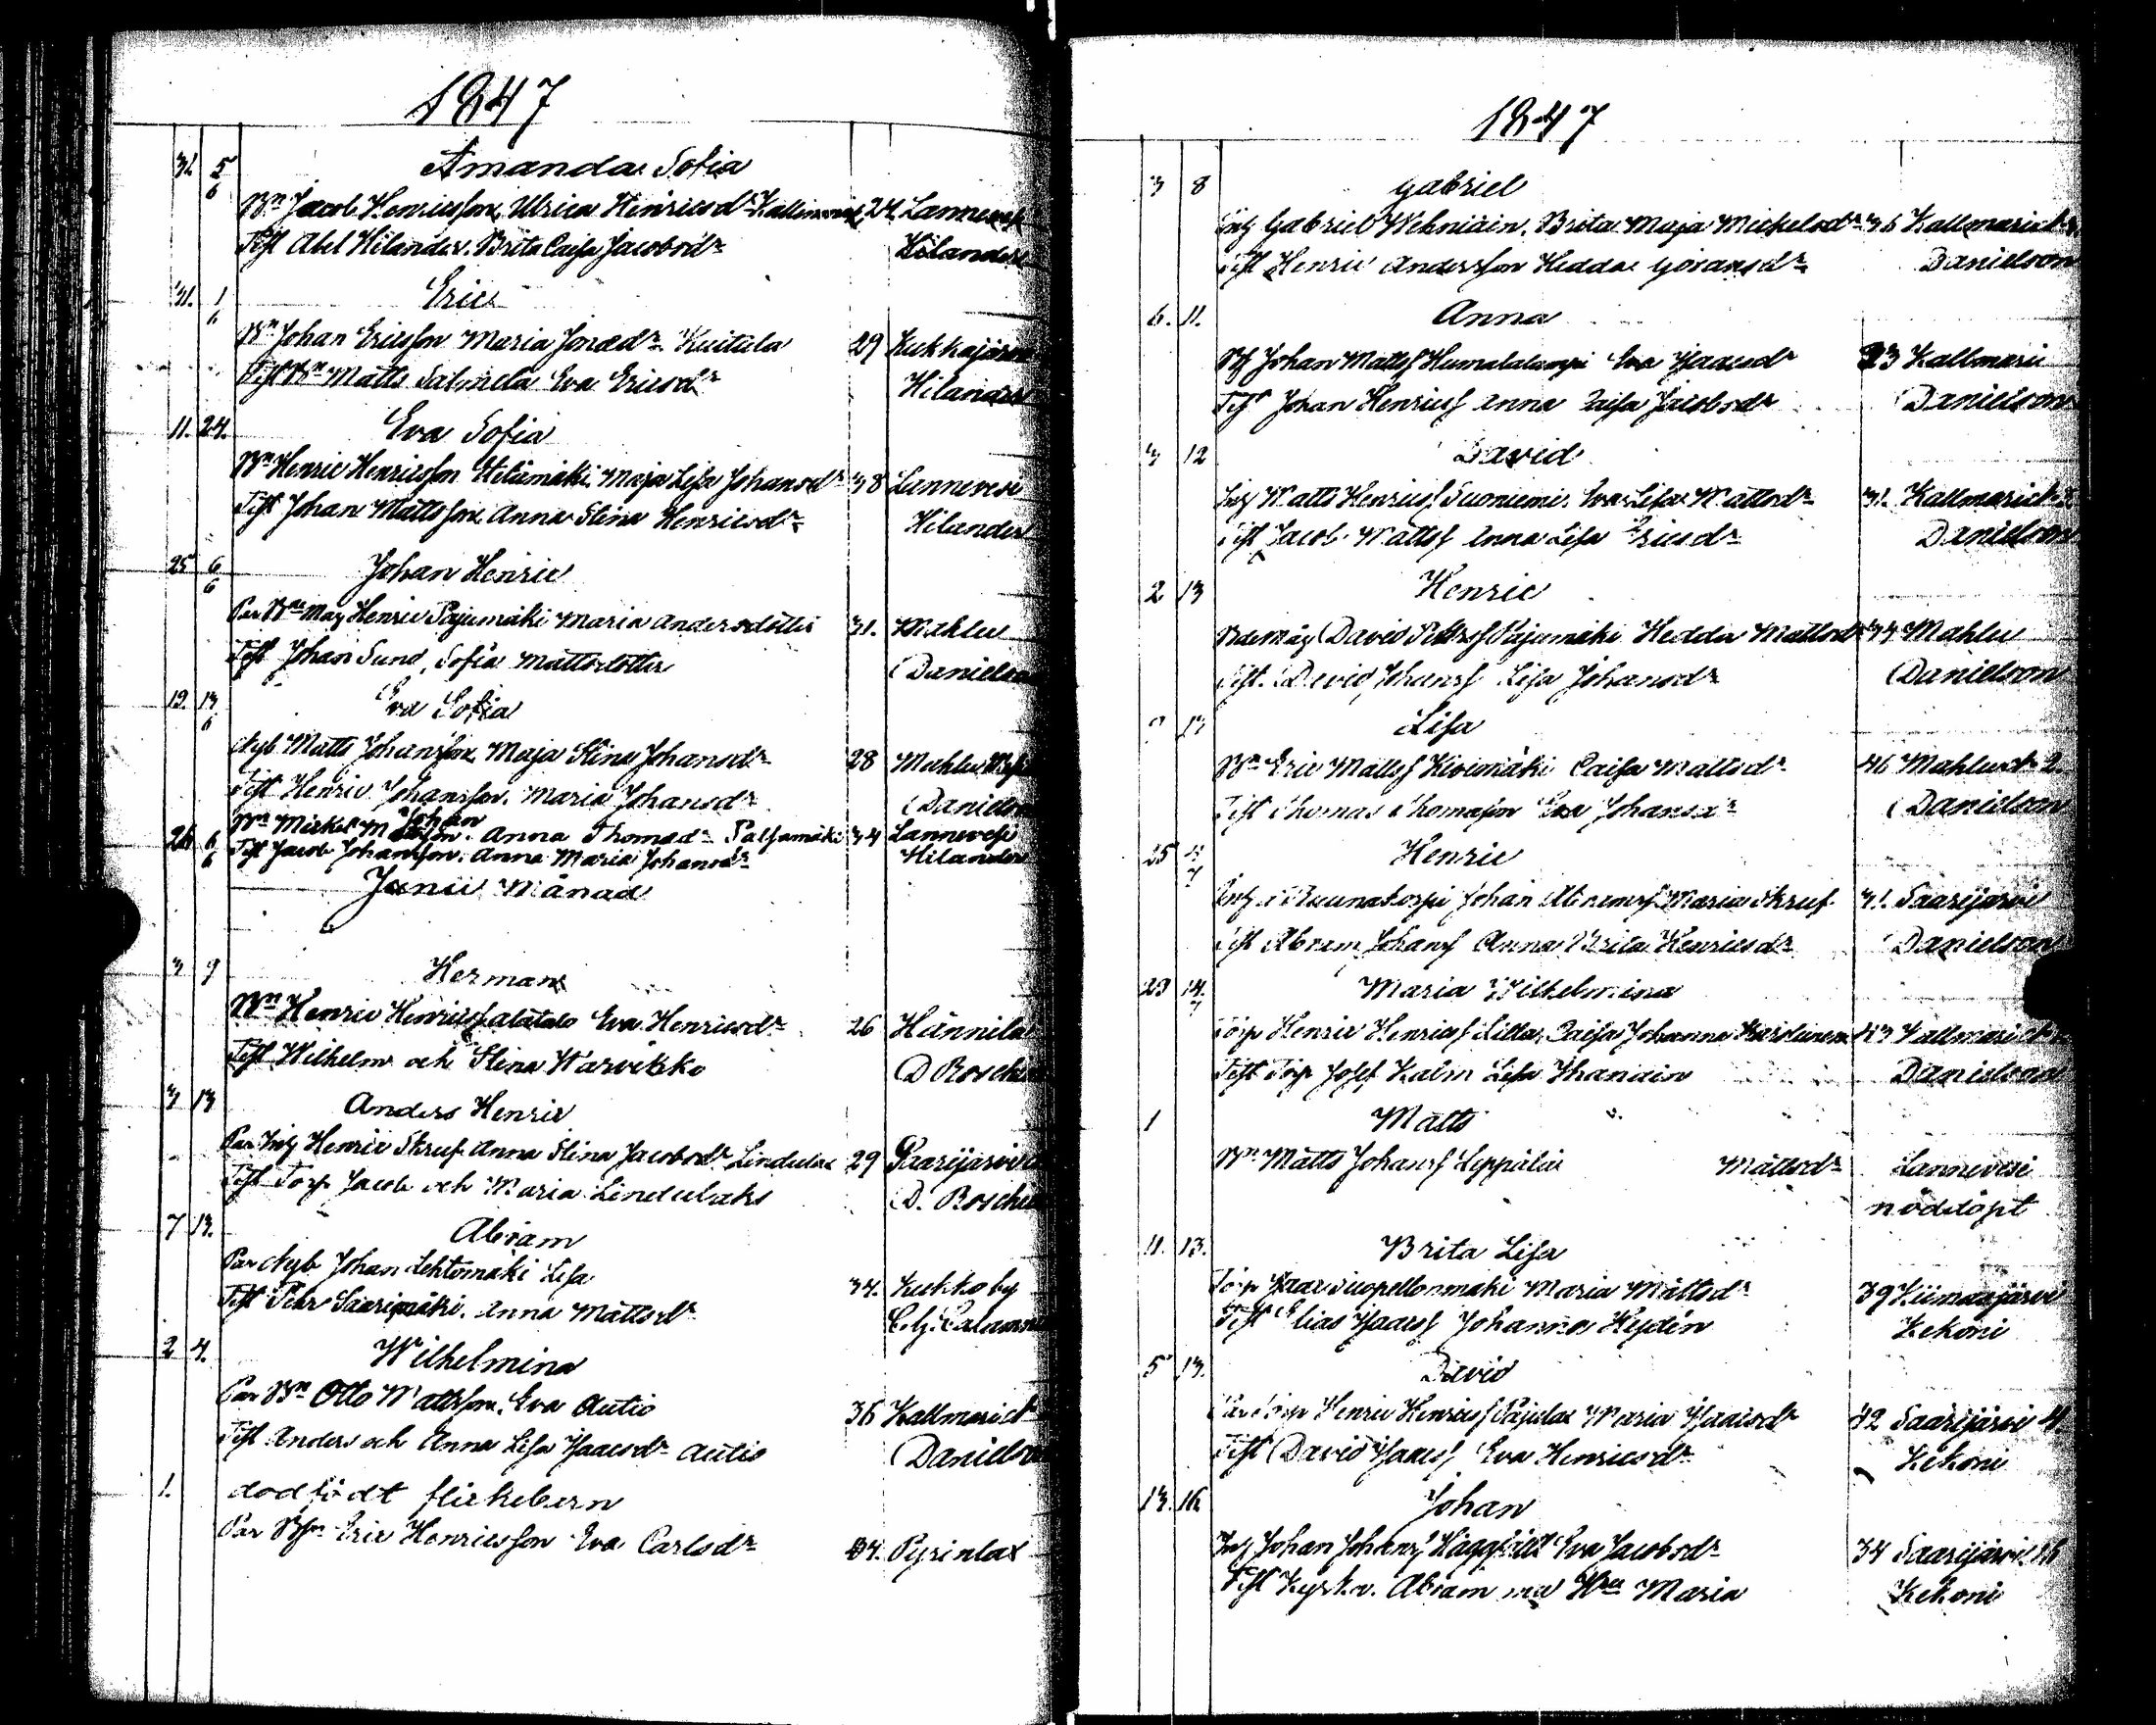 1847
31. 5/6 Amanda Sofia
Bn Jacob Henricsson, Ulrica Henricsdr 24 Lannevesi
Test Abel Hilander. Brita Caisa Jacobsdr Hilander
31. 1/6 Eric
Bn Johan Ericsson Maria Jonædr Kuitula 29 Kukkajärvi
Test Bn Matts Salmela Eva Ericsdr Hilander
11. 24. Eva Sofia
Bn Henric Henricsson Maja Lisa Johansdr 38 Lannevesi
Test Johan Mattsson Anna Stina Henricsdr Hilander
25 6/6 Johan Henric
Par Bne Mag Henric Pajumäki Maria Andersdotter 31. Mahlu
Test Johan Sund, Sofia Mattsdotter Danielson
19. 13/6 Eva Sofia
Nyb Matts Johansson, Maja Stina Johansdr 28 Mahlu
Test Henric Johansson. Maria Johansdr Danielson
Johan
26 6/6 Bn Mickel Anna Thomasdr 34 Lannevesi
Test Jacob Johansson. Anna Maria Johansdr Hilander
Junii Månad
3 9 Herman
Bn Henric Henricss Alatalo Eva Henricsdr 26 Hännilä
Test Wilhelm och Stina Warvikko D Roschier
3 13 Anders Henric
Par Inh Henric Skruf Anna Stina Jacobsdr Lindulax 29 Saarijärvi
Test Torp Jacob och Maria Lindulaks D. Roschier
7 13. Abram
Par Nyb Johan Lehtomäki Lisa 34. Kukko by
Test Pehr Saarimäki. Anna Mattsdr
2 4. Wilhelmina
Par Bn Otto Mattsson. Eva Autio 36 Kallmari
Test Anders och Anna Lisa Isaacsdr Autio Danielson
1. dödfödt flickebarn
Par Eric Henricsson Eva Carlsdr 34. Pyrinlax
1847
3 8 Gabriel
Inh Gabriel Wehniäin. Brita Maja Mickelsdr 36 Kallmari
Test Henric Andersson Hedda Göransdr Danielson
6. 11. Anna
Johan Mattss Humalalampi Eva Isacsdr 23 Kallmari
Test Johan Henricss Anna Caisa Jacobsdr Danielson
3 12 David
Inh Matts Henricss Suoniemi. Eva Lisa Mattsdr 31. Kallmari
Test Jacob Mattss Anna Lisa Ericsdr Danielson
2 13 Henric
Bdemåg David Pajumäki Hedda Mattsdr 33 Mahlu
Test. David Johanss Lisa Johansdr Danielson
13 Lisa
Bn Eric Mattss Kivimäki Caisa Mattsdr 46 Mahlu 2.
Test Thomas Thomasson Eva Johansdr Danielson
25 Henric
Johan Maria Skruf 31. Saarijärvi
Test Abram Johanss Anna Brita Henricsdr Danielson
23 14. Maria Wilhelmina
Torp Henric Henricss Caisa Johanna 43 Kallmari
Test Torp Josef Kalm Lisa Danielson
1 Matts
Bn Matts Johanss Leppälä Mattsdr Lannevesi
nöddöpt
11. 13. Brita Lisa
Torp Isaac Suopellonmäki Maria Mattsdr 39 Kiimasjärvi
Test Elias Isaacss Johanna Hydén Kekoni
5 13. David
Par Torp Henric Henricss Pajula Maria Isaacsdr 42 Saarijärvi 4.
Test David Isaacss Eva Henricsdr Kekoni
13. 16 Johan
Inh Johan Johanss Häggblit Eva Jacobsdr 34 Saarijärvi 16
Test Kyrkv. Abram md Hru Maria Kekoni